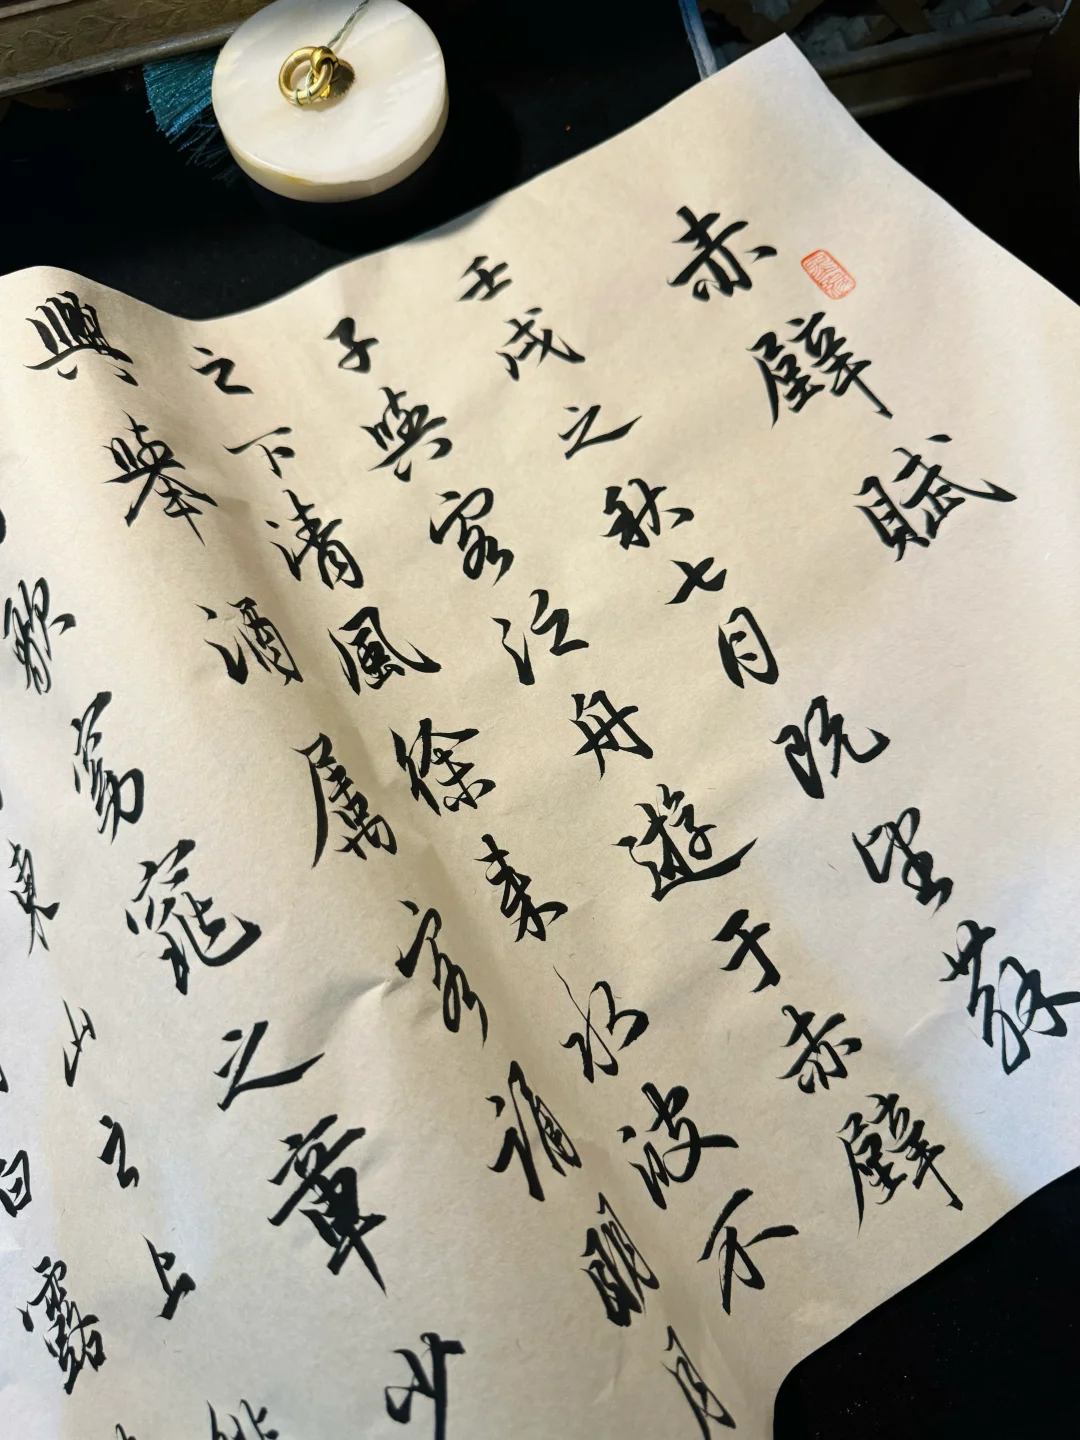 赤壁賦
壬戌之秋七月既望蘇
子與客泛舟遊于赤壁
之下清風徐來水波不
興舉酒屬客誦明月
歌窈窕之章少
東山之上徘
白露